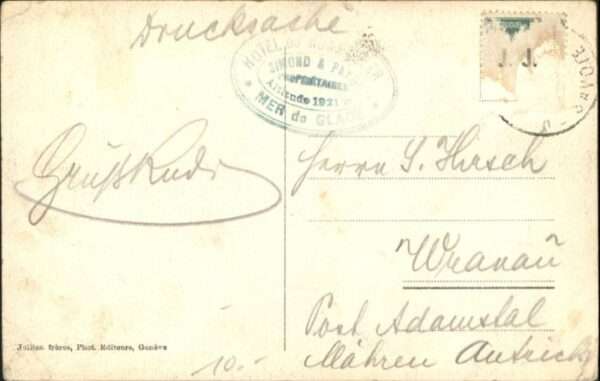 Drucksache
HOTEL du MONTENVER
SIMOND & PAYOT
PROPRIÉTAIRES
Altitude 1921 m
* MER de GLACE *
J. J.
Gruß Rudi
Herrn S. Hirsch
Wranau
Post Adamstal
Mähren Autrich
Jullien frères, Phot. Editeurs, Genève
10.-